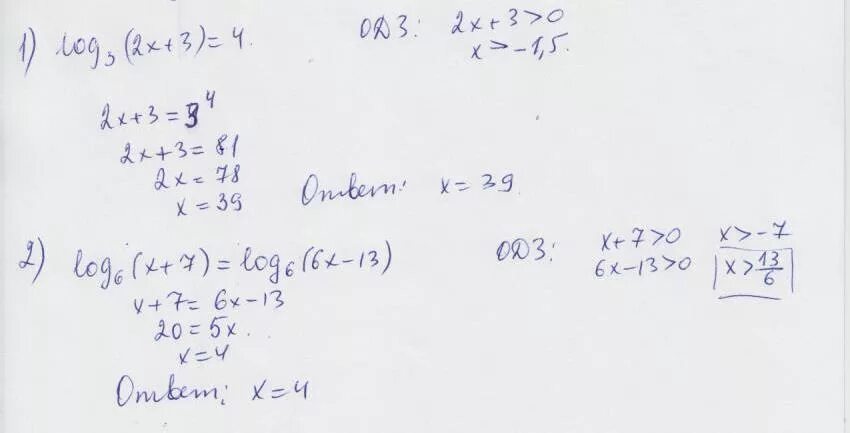 1) log₃(2x+3)=4. ОДЗ: 2x+3>0
x>-1,5.
2x+3=3⁴
2x+3=81
2x=78
x=39
Ответ: x=39.
2) log₆(x+7)=log₆(6x-13) ОДЗ: x+7>0 x>-7
6x-13>0 x>13/6
x+7=6x-13
20=5x.
x=4
Ответ: x=4